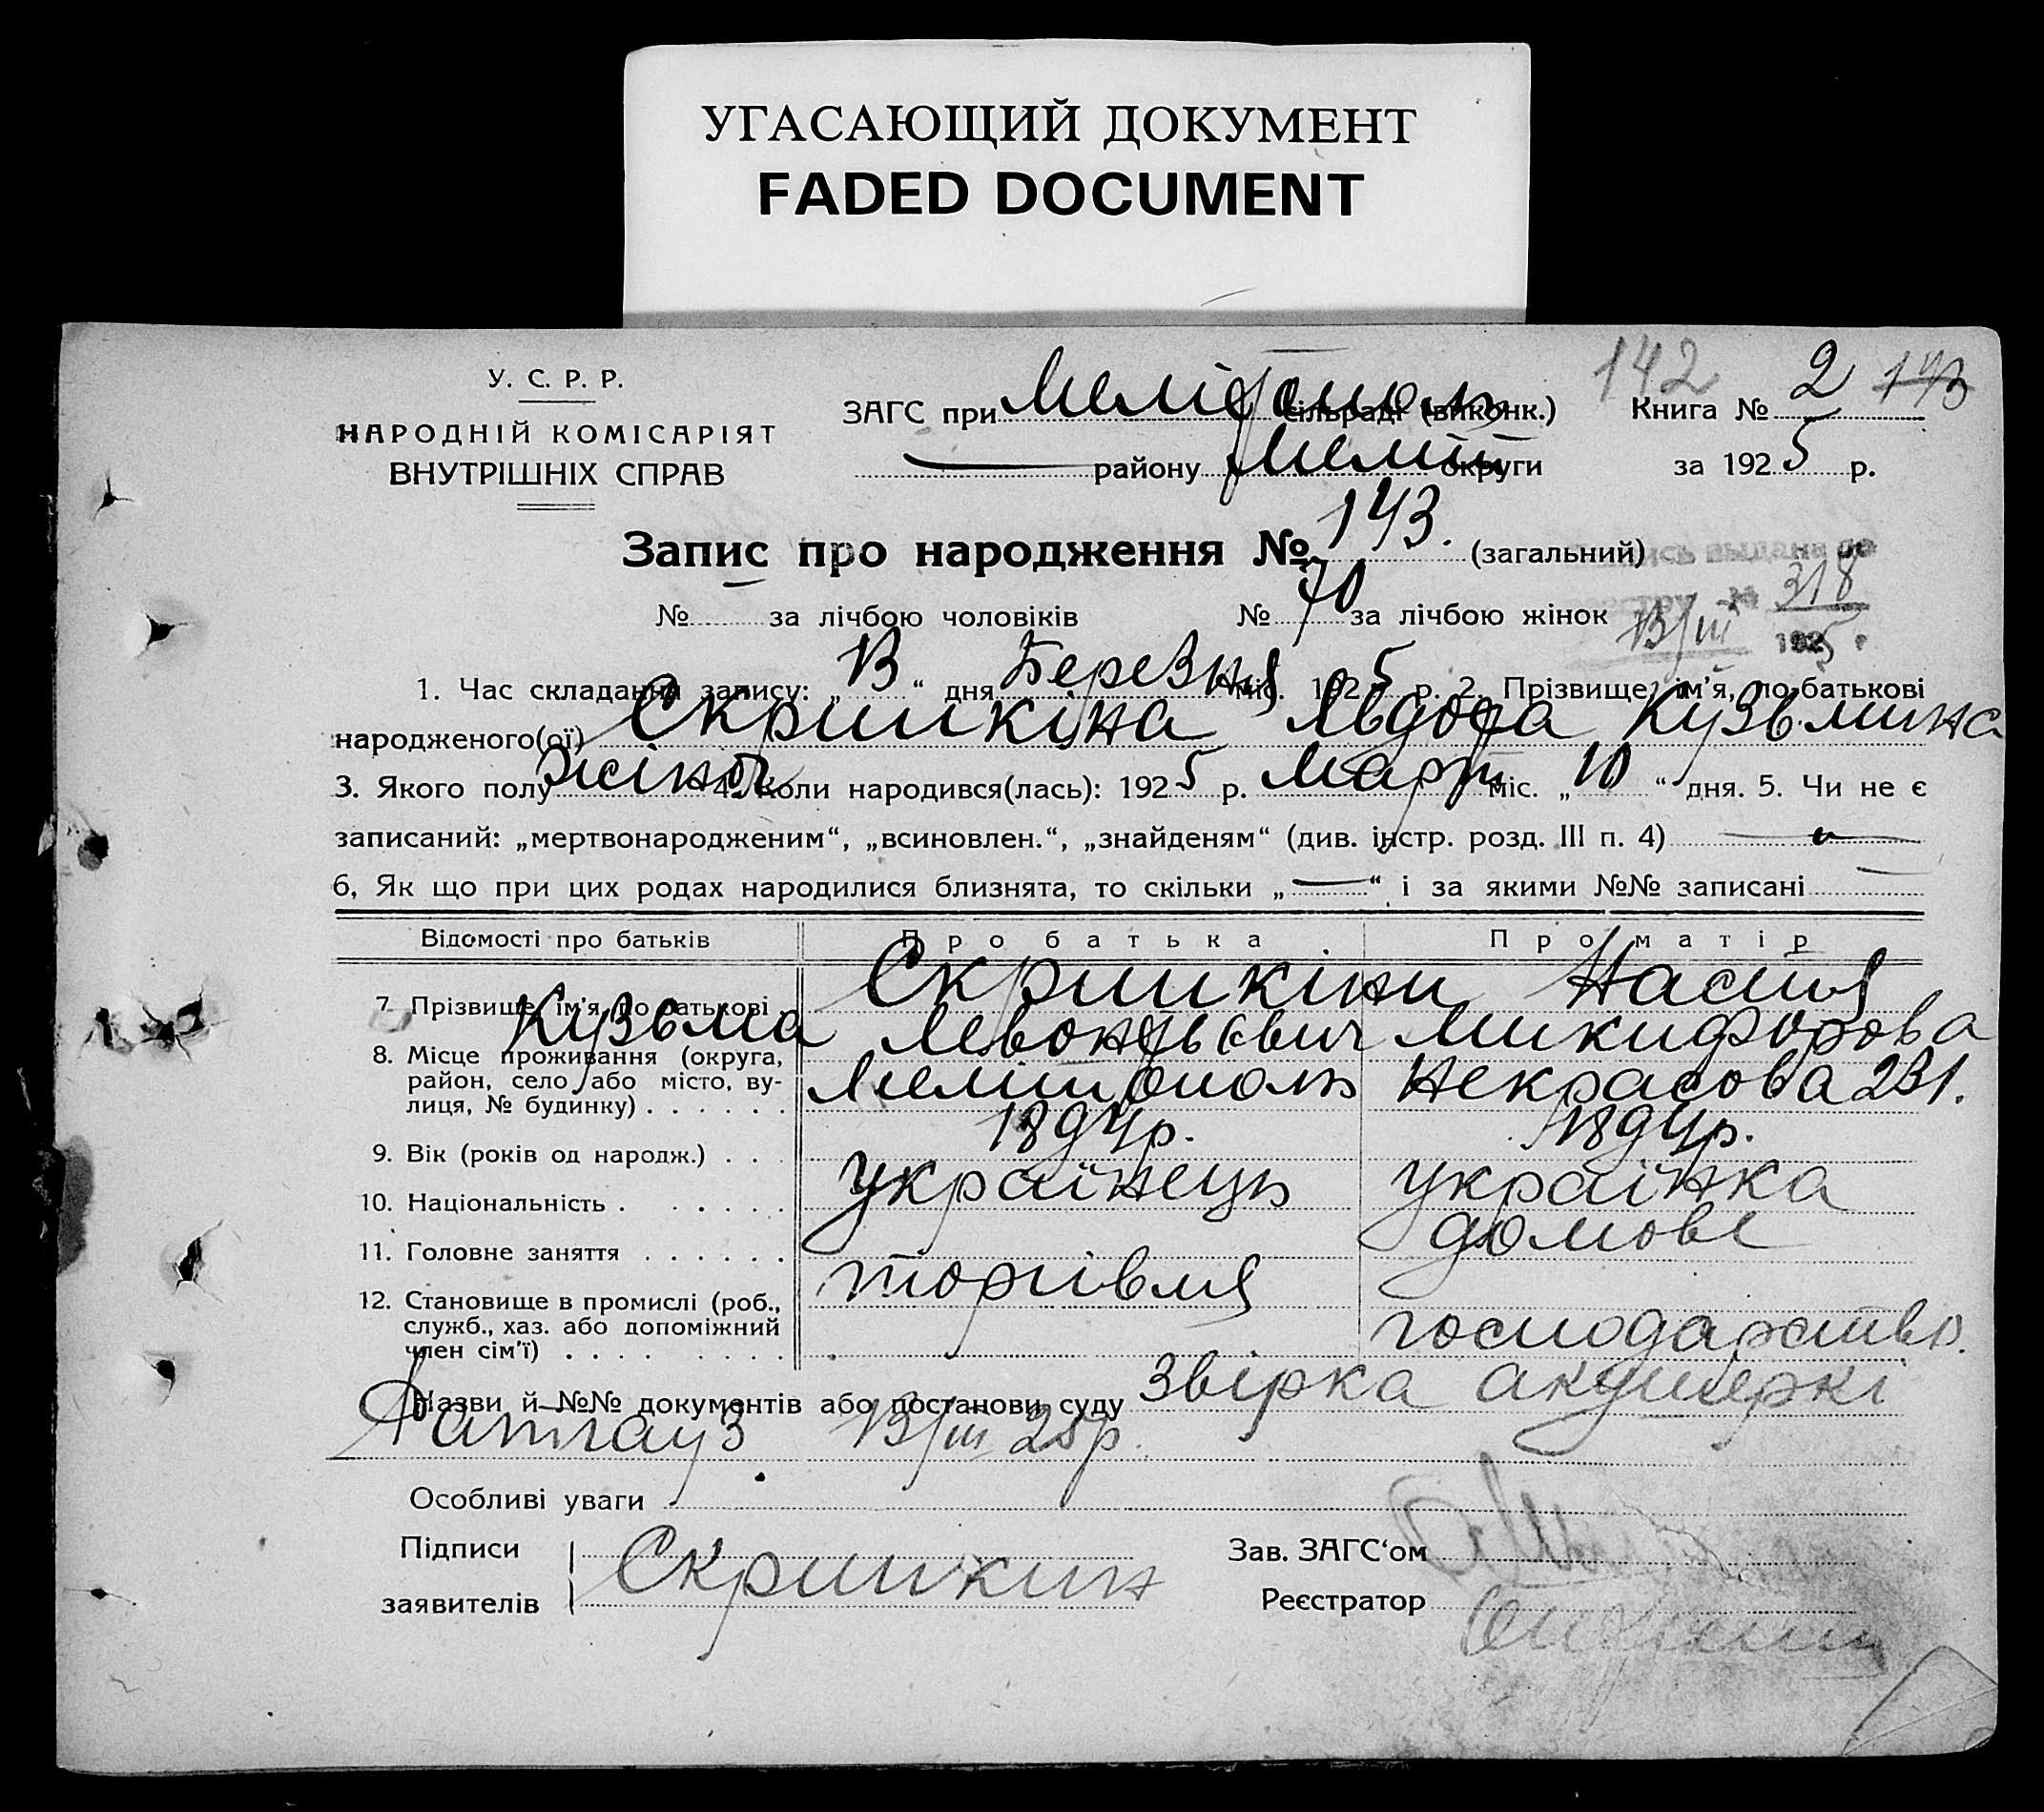 УГАСАЮЩИЙ ДОКУМЕНТ
FADED DOCUMENT
142
У. С. Р. Р.
НАРОДНІЙ КОМІСАРІЯТ
ВНУТРІШНІХ СПРАВ
ЗАГС при Мелітополь сільраді (виконк.) Книга № 2 143
району Меліт округи за 1925 р.
Запис про народження № 143. (загальний)
№ — за лічбою чоловіків № 70 за лічбою жінок
выдана по
318
13/III 1925 г
1. Час складання запису: „13“ дня Березня міс. 1925 р. 2. Прізвище, ім'я, по-батькові
народженого(ої) Скришкіна Явдоха Кузьминa
3. Якого полу жіноч 4. Коли народився(лась): 1925 р. Март міс. „10“ дня. 5. Чи не є
записаний: „мертвонародженим“, „всиновлен.“, „знайденям“ (див. інстр. розд. III п. 4) —
6, Як що при цих родах народилися близнята, то скільки „—“ і за якими №№ записані —
Відомості про батьків Про батька Про матір
7. Прізвище, ім'я по батькові Скришкіни Настя
Кузьма Левонтьєвич Микифорова
8. Місце проживання (округа, район, село або місто, вулиця, № будинку) Мелітополь Некрасова 231.
9. Вік (років од народж.) 1894р. 1894р.
10. Національність українець українка
11. Головне заняття торгівля домове
12. Становище в промислі (роб., служб., хаз. або допоміжний член сім'ї) господарство.
Назви й №№ документів або постанови суду Звірка акушеркі
13/III 25р.
Особливі уваги
Підписи
заявителів Скришкин
Зав. ЗАГС'ом
Реєстратор